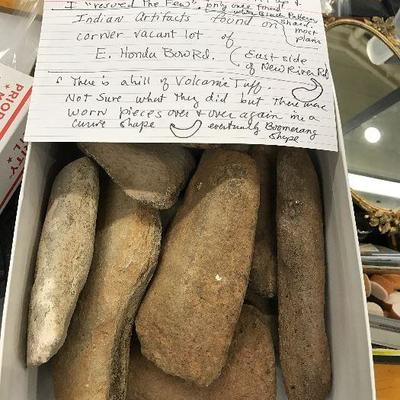 I "rescued The Few", only ones found
Indian Artifacts found on
corner vacant lot of
E. Honda Bow Rd. East side
of New River Rd
There is a hill of Volcanic Tuff.
Not Sure what They did but There were
worn pieces over & over again in a
curve shape eventually Boomerang
shape.
PRIOR